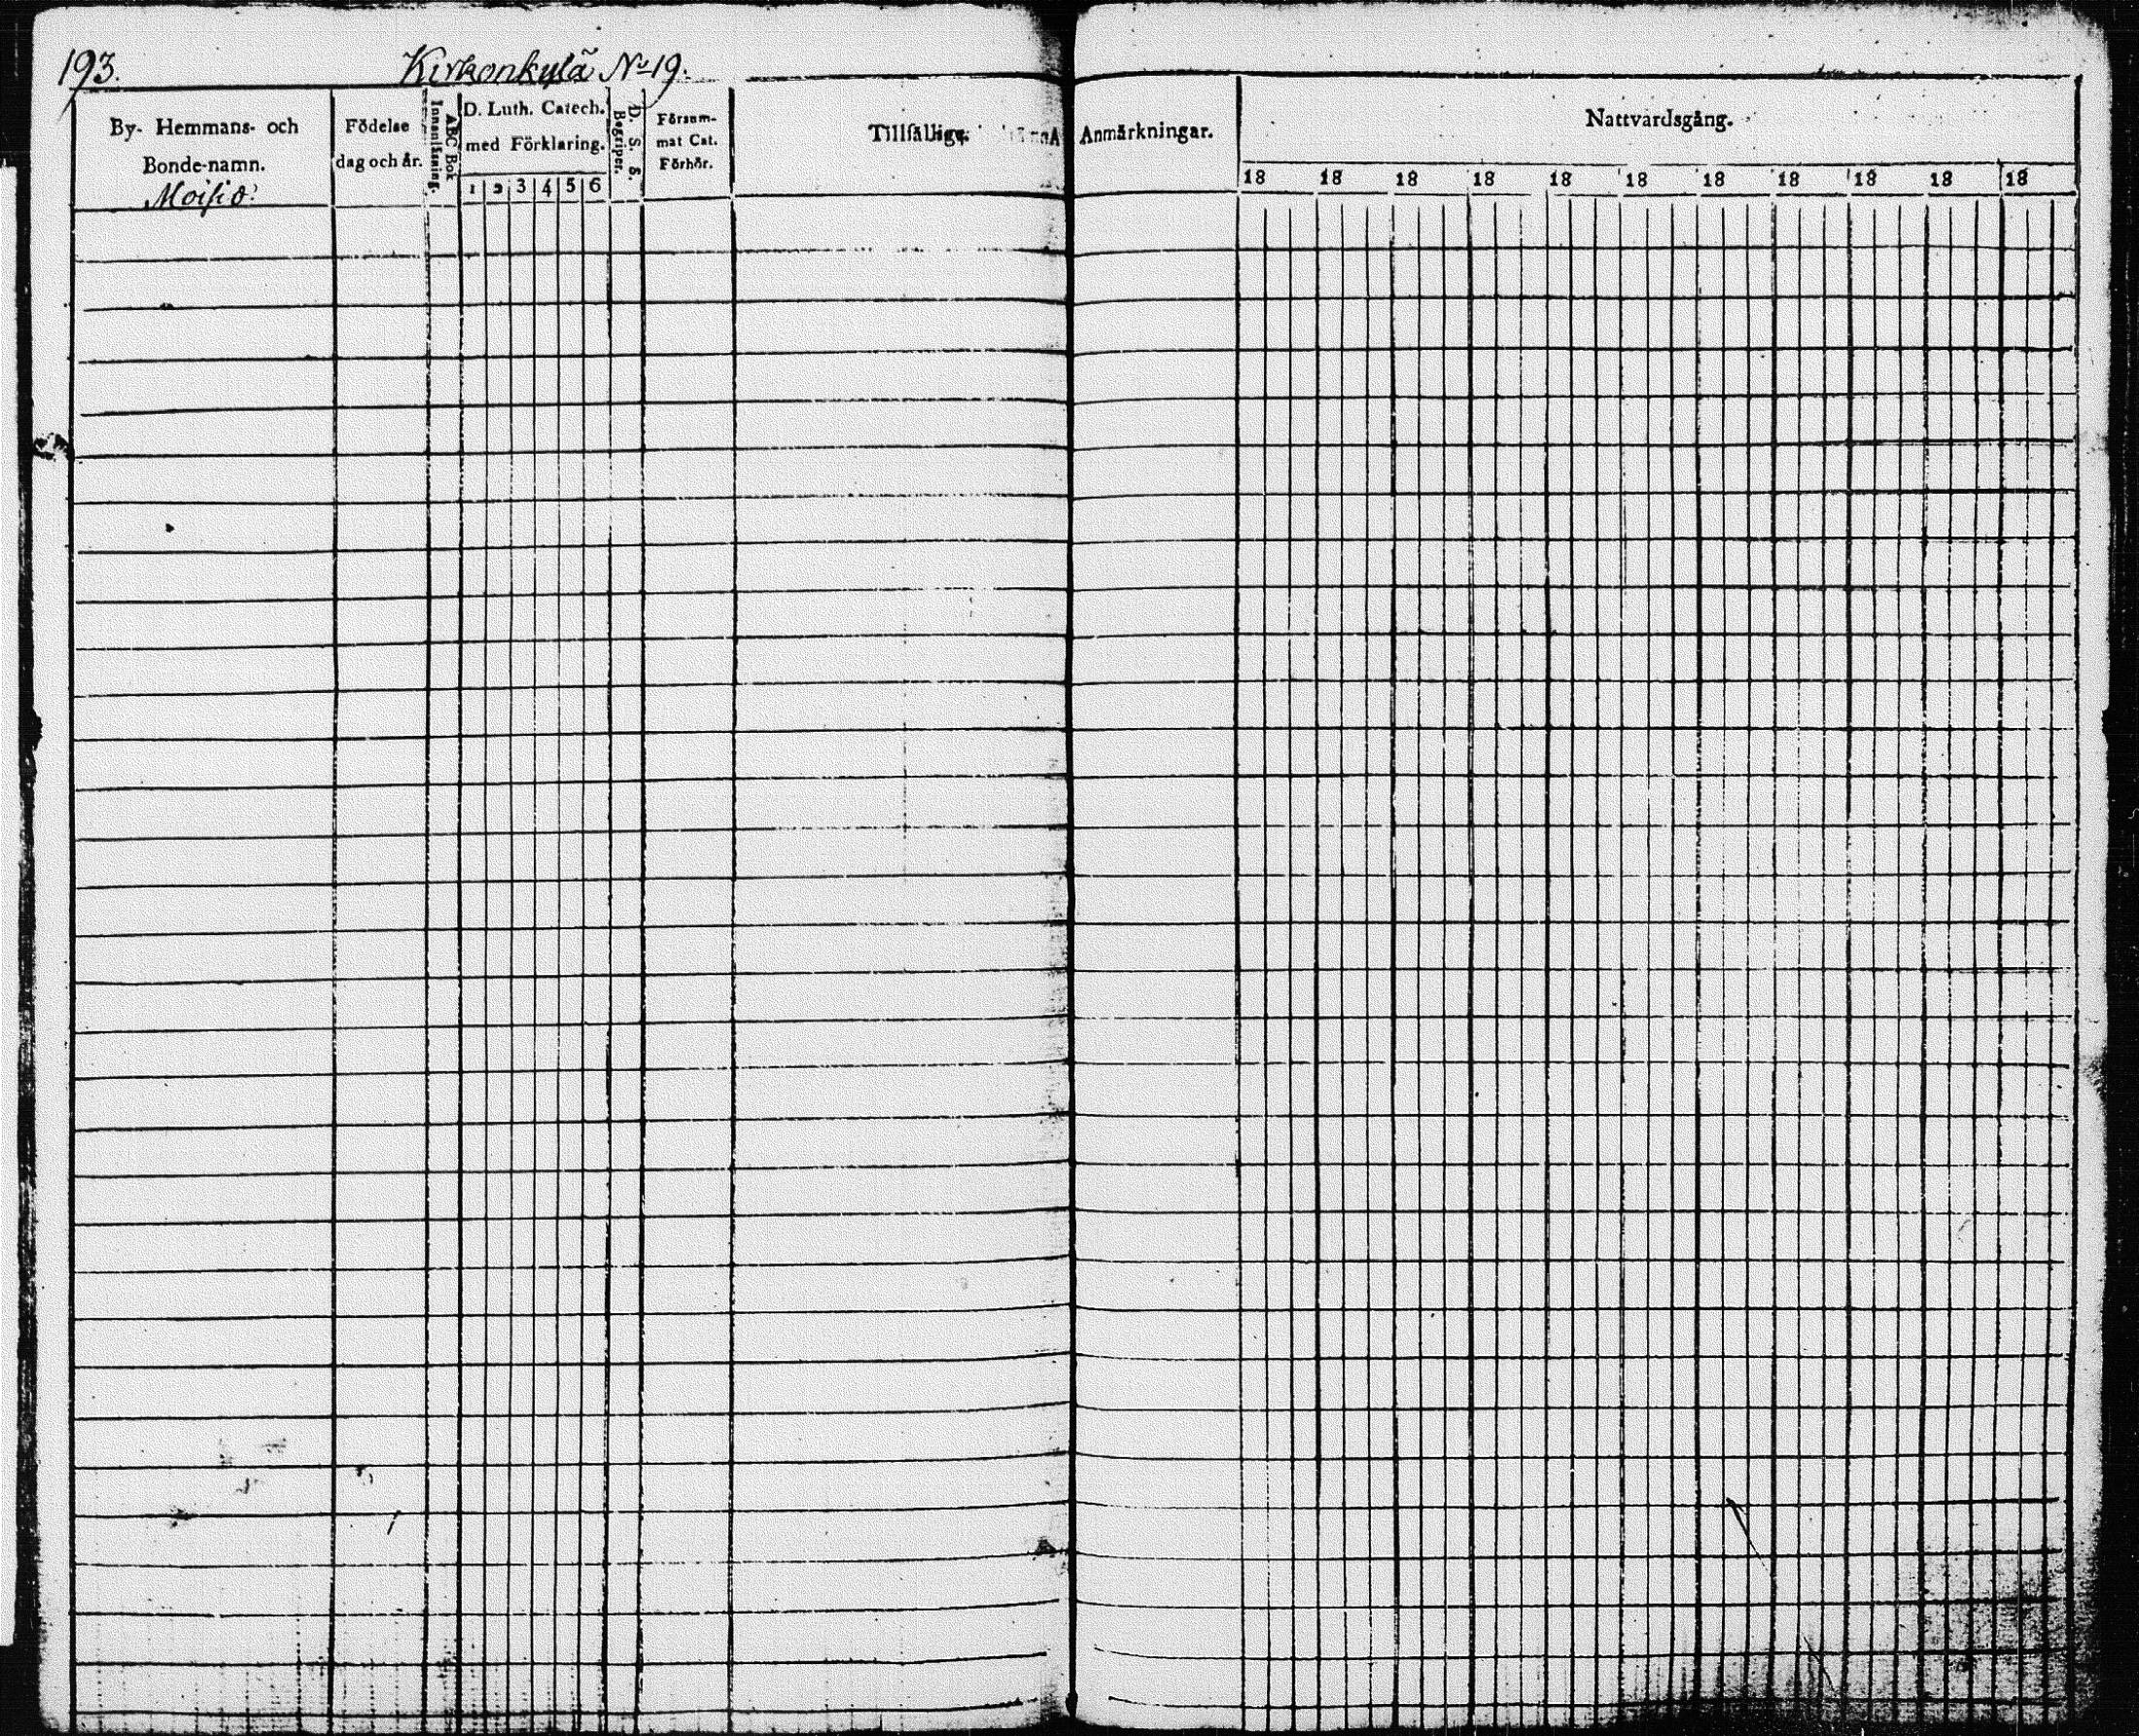 193. Kirkonkylä No 19.
By- Hemmans- och
Bonde-namn.
Moisio.
Födelse
dag och år.
ABC Bok
Innanläsning.
D. Luth. Catech.
med Förklaring.
1 2 3 4 5 6
D. S. S.
Begriper.
Försum-
mat Cat.
Förhör.
Tillfällige Anmärkningar.
Nattvardsgång.
18 18 18 18 18 18 18 18 18 18 18